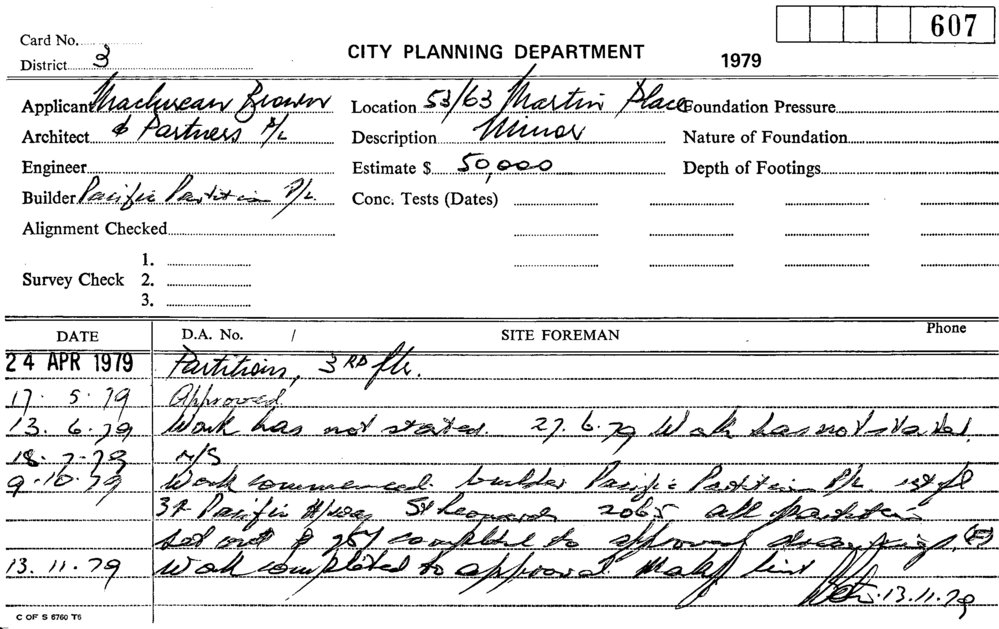 607
Card No.
CITY PLANNING DEPARTMENT
1979
District 3
Applicant Maclurcan Brown
Location 53/63 Martin Place
Foundation Pressure
Architect & Partners P/L
Description Minor
Nature of Foundation
Engineer
Estimate $ 50,000
Depth of Footings
Builder Pacific Partition P/L.
Conc. Tests (Dates)
Alignment Checked
1.
Survey Check 2.
3.
DATE D.A. No. / SITE FOREMAN Phone
24 APR 1979 Partitions, 3RD flr.
17. 5. 79 Approved
13. 6. 79 Work has not started. 27. 6. 79 Work has not started.
18-7-79 N/S
9.10.79 Work commenced. builder Pacific Partition P/L 1st fl
37 Pacific H/way St Leonards 2065 all partition
set out & 25% completed to approved drawings.
13.11.79 Work completed to approval.
13.11.79
C OF S 6760 T6